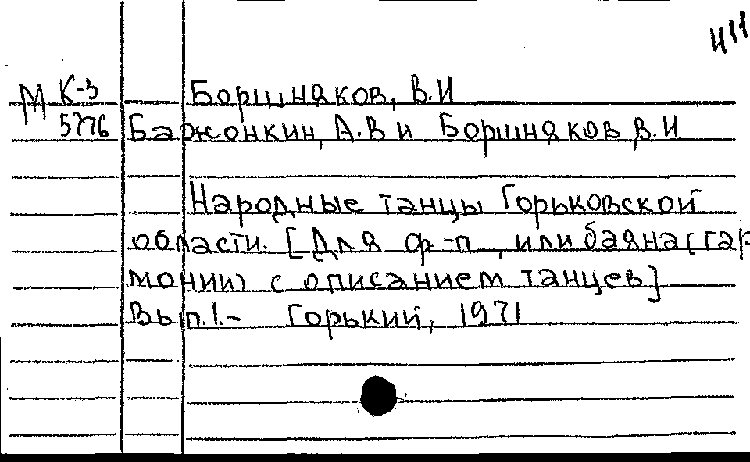 411
М К-3 Боршняков, В.И
5776 Бажонкин, А.В и Боршняков В.И
Народные танцы Горьковской
области. [Для ф-п, или баяна (гар
монии) с описанием танцев]
Вып.1.- Горький, 1971